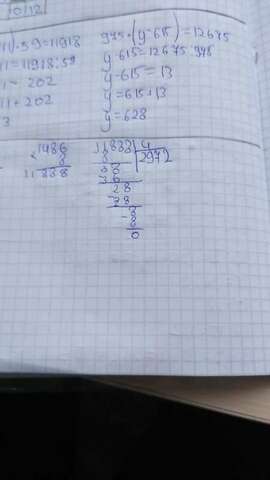 10/12
11)·59=11918
11=11918:59
202
11+202
3
975·(y-615)=12675
y-615=12675:975
y-615=13
y=615+13
y=628
1486
× 8
11888
11888|4
8 |2972
38
36
28
28
-8
8
0